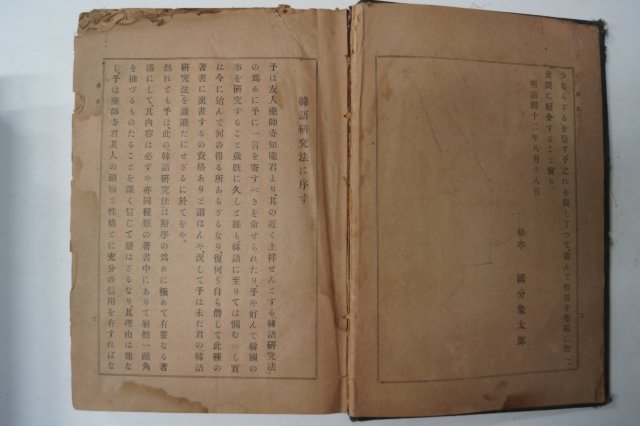 少ならざるを信ず予之れを閲し了つて、喜んで数言を巻端に加へ
世間に紹介すること爾り
明治四十二年八月十八日
國分象太郎
序文
韓語研究法に序す
予は友人薬師寺知朧君より、其の近く上梓せんとする韓語研究法
の爲めに予に一言を寄すべきを命ぜられたり、予を好んで韓國の
事を研究すること歳既に久しと雖も韓語に至りては
は今に迨んで何の得る所あらざるなり、復何ぞ自ら僭して此種の
著書に裏書するの資格ありと謂はんや、況して予は未だ君の韓語
研究法を通讀だにせざるに於てをや、
然れども予は此の韓語研究法は斯學の爲めに極めて有要なる著
述にして、其内容は必ずや亦同種類の著書中にありて嶄然一頭角
を抽づるものたることを深く信じて疑はざるなり、其理由は他な
し、予は薬師寺君其人の頭腦と性格とに充分の信用を有すればな